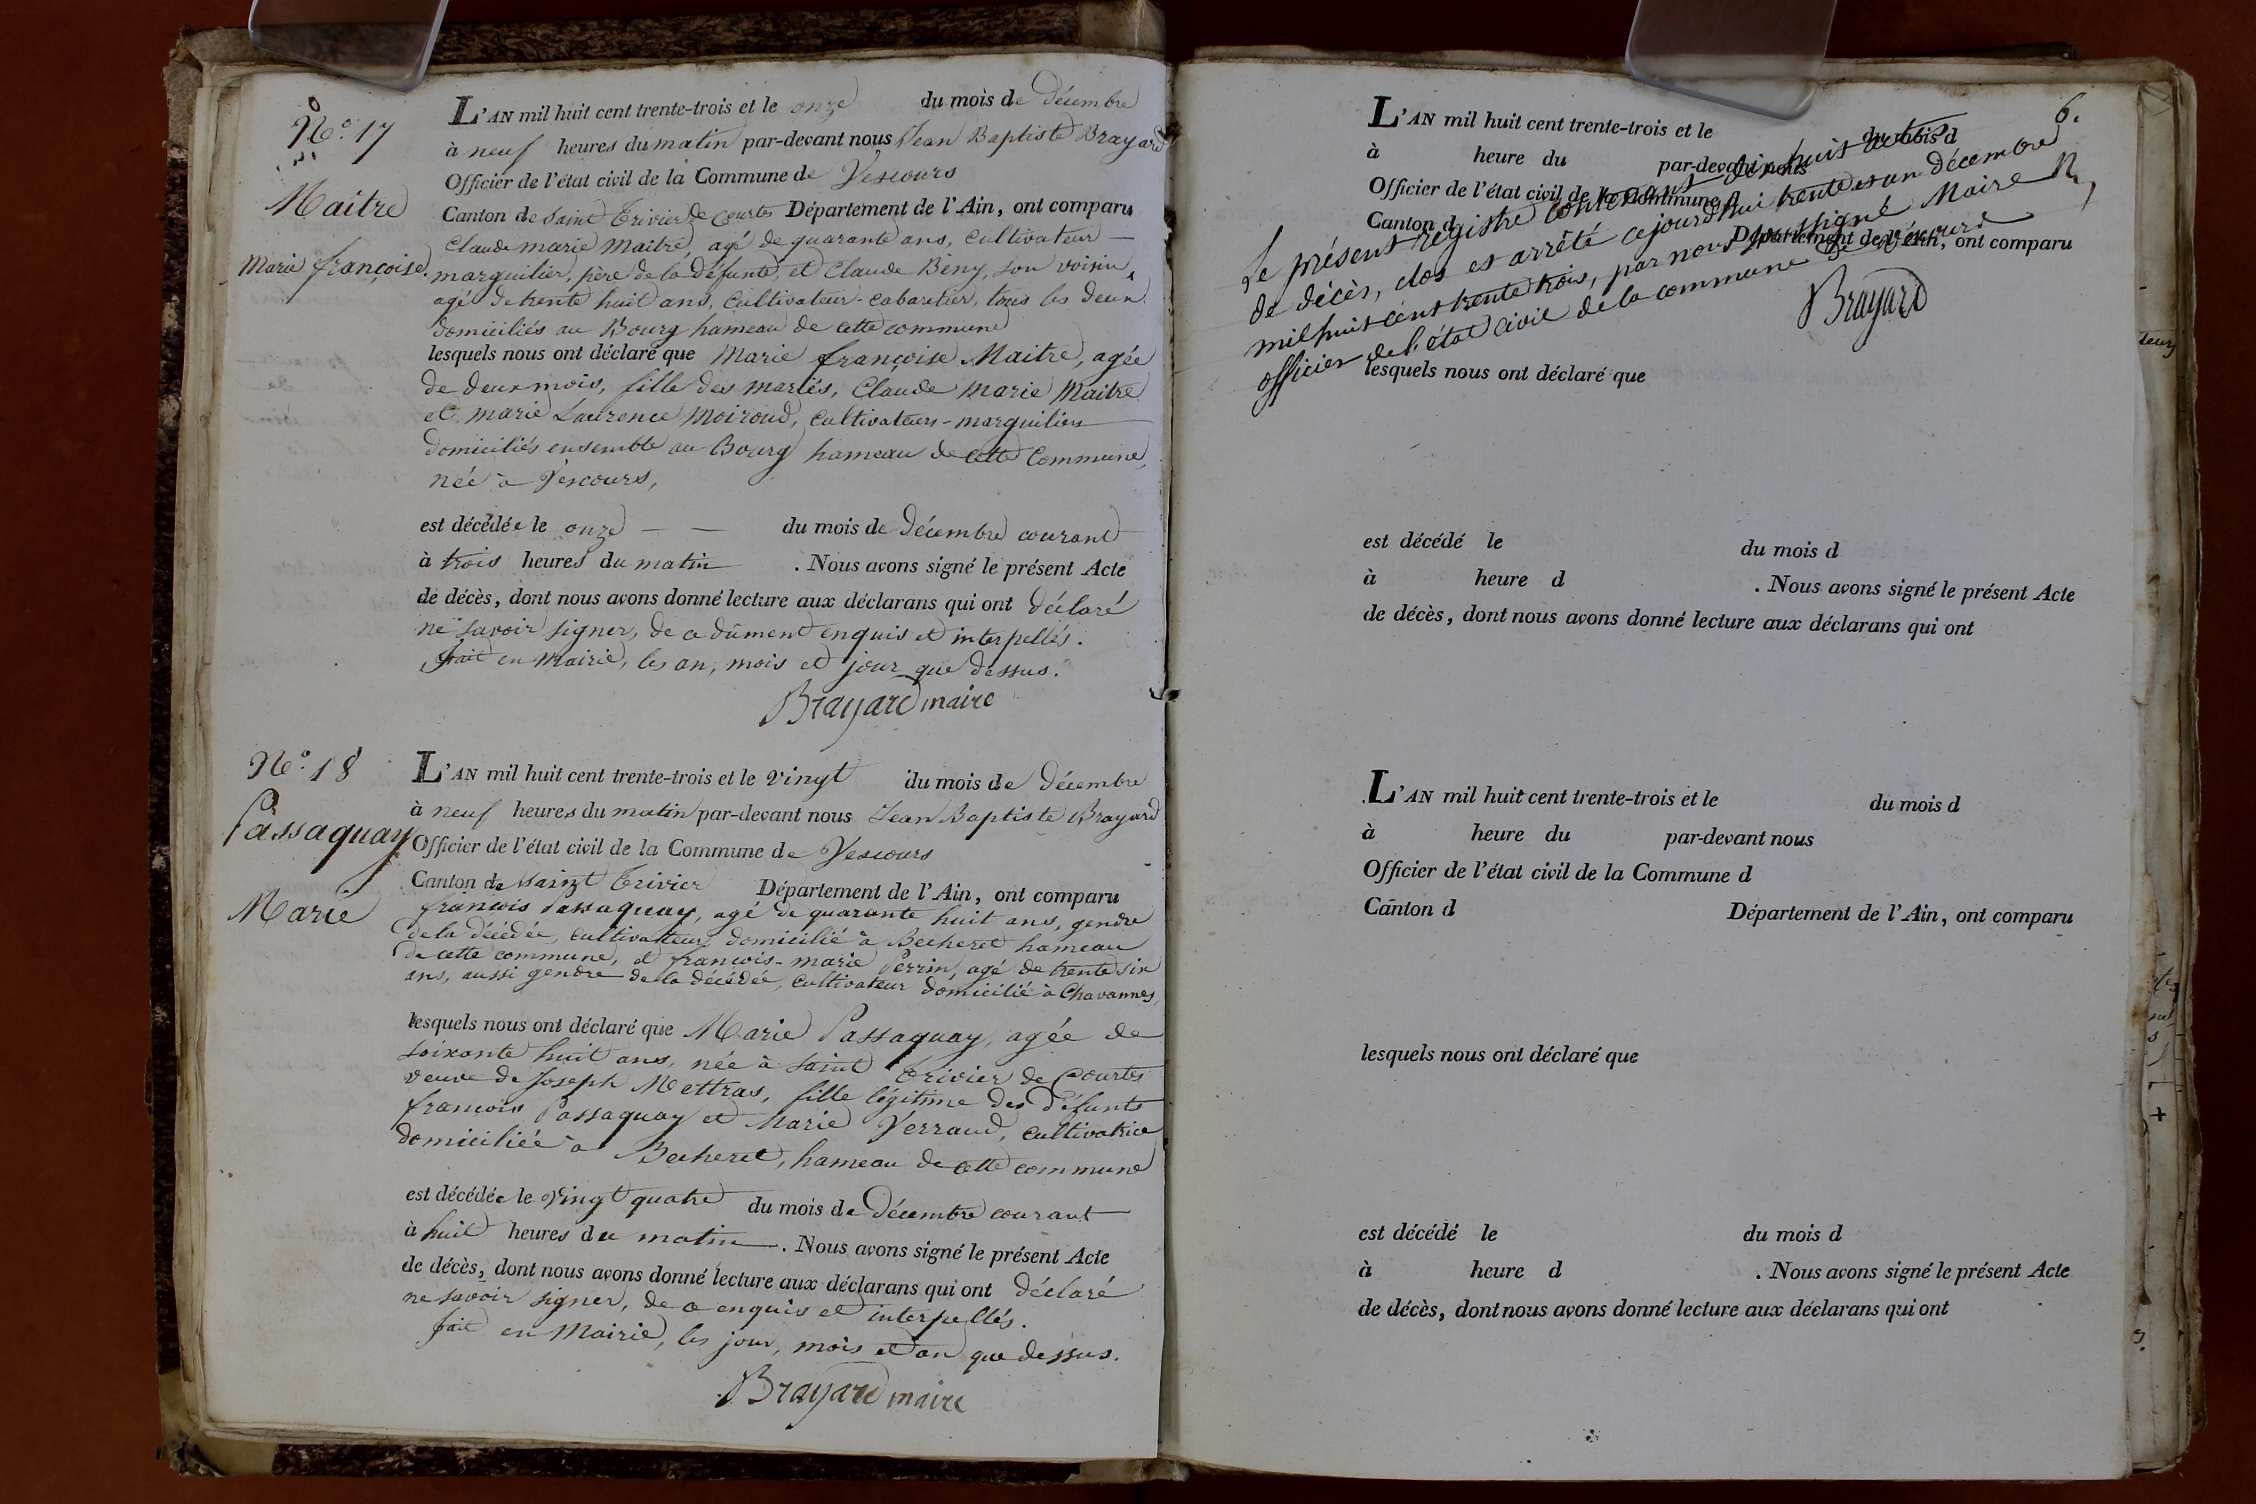 N.° 17
Maitre
Marie françoise.
L'AN mil huit cent trente-trois et le onze du mois de décembre
à neuf heures du matin par-devant nous Jean Baptiste Brayard
Officier de l'état civil de la Commune de Vescours
Canton de Saint Trivier de Courtes Département de l'Ain, ont comparu
Claude marie Maitre, agé de quarante ans, cultivateur
marguilier, père de la défunte, et Claude Beny, son voisin
agé de trente huit ans, cultivateur-cabaretier, tous les deux
domiciliés au Bourg hameau de cette commune
lesquels nous ont déclaré que Marie françoise Maitre, agée
de deux mois, fille des mariés, Claude Marie Maitre
et marie Laurence Moiroud, cultivateurs-marguiliers
domiciliés ensemble au Bourg hameau de cette Commune,
née à Vescours,
est décédée le onze du mois de décembre courant
à trois heures du matin . Nous avons signé le présent Acte
de décès, dont nous avons donné lecture aux déclarans qui ont déclaré
ne savoir signer, de ce dûment enquis et interpellés.
fait en Mairie, les an, mois et jour que dessus.
Brayard maire
N.° 18
Passaquay
Marie
L'AN mil huit cent trente-trois et le vingt du mois de décembre
à neuf heures du matin par-devant nous Jean Baptiste Brayard
Officier de l'état civil de la Commune de Vescours
Canton de Saint Trivier Département de l'Ain, ont comparu
françois Passaquay, agé de quarante huit ans, gendre
de la décédée, cultivateur domicilié à Becheret hameau
de cette commune, et françois-marie Perrin, agé de trente six
ans, aussi gendre de la décédée, cultivateur domicilié à Chavannes,
lesquels nous ont déclaré que Marie Passaquay, agée de
soixante huit ans, née à Saint Trivier de Courtes
veuve de Joseph Mettras, fille légitime des défunts
françois Passaquay et Marie Verraud, cultivatrice
domiciliée à Becheret, hameau de cette commune
est décédée le vingt quatre du mois de décembre courant
à huit heures du matin . Nous avons signé le présent Acte
de décès, dont nous avons donné lecture aux déclarans qui ont déclaré
ne savoir signer, de ce enquis et interpellés.
fait en Mairie, les jour, mois et an que dessus.
Brayard maire
6.
L'AN mil huit cent trente-trois et le du mois d
à heure du par-devant nous
Officier de l'état civil de la Commune d
Canton d Département de l'Ain, ont comparu
Le présent registre contenant dix huit actes
de décès, clos et arrêté cejourd'hui trente et un décembre
mil huit cent trente trois, par nous soussigné Maire
officier de l'état civil de la commune de Vescours
Brayard
lesquels nous ont déclaré que
est décédé le du mois d
à heure d . Nous avons signé le présent Acte
de décès, dont nous avons donné lecture aux déclarans qui ont
L'AN mil huit cent trente-trois et le du mois d
à heure du par-devant nous
Officier de l'état civil de la Commune d
Canton d Département de l'Ain, ont comparu
lesquels nous ont déclaré que
est décédé le du mois d
à heure d . Nous avons signé le présent Acte
de décès, dont nous avons donné lecture aux déclarans qui ont